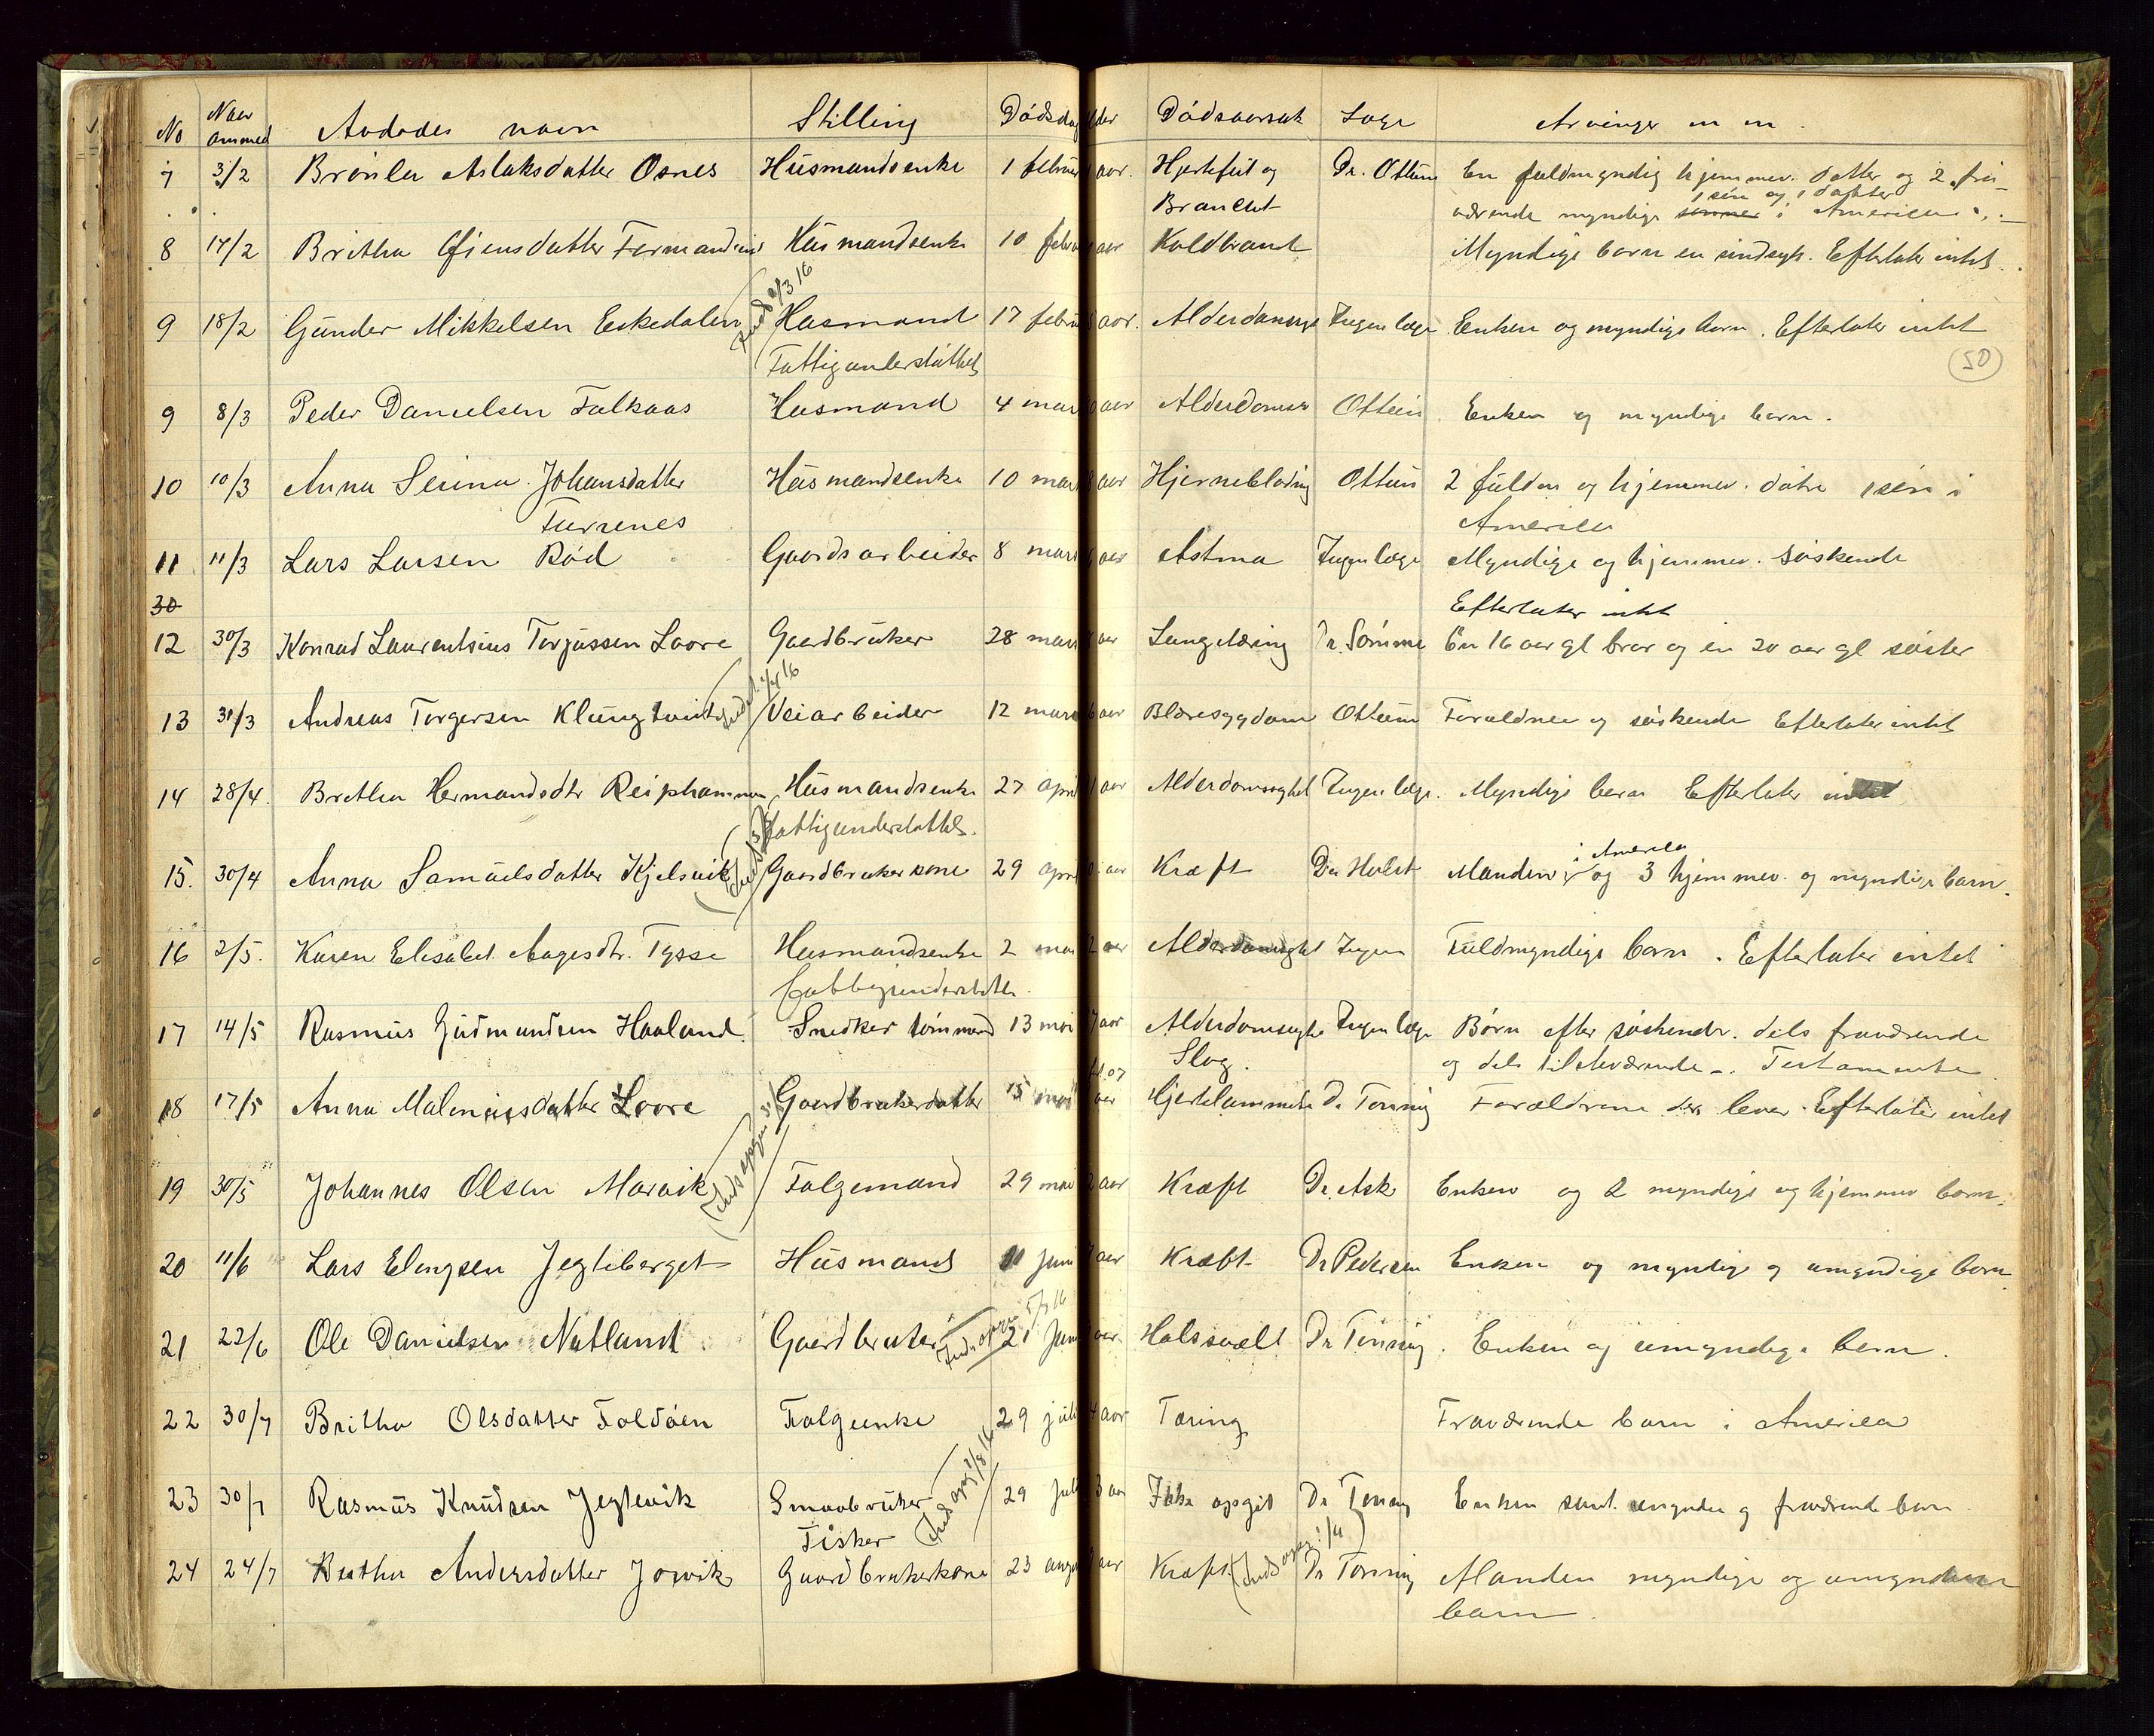 No Naar anmed Avdødes navn Stilling Dødsdag lder Dødsaarsak Læge Arvinger m m.
7 3/2 Brønla Aslaksdatter Osnes Husmandsenke 1 februar aar. Hjertefeil og Dr. Ottun En fuldmyndig hjemmev. datter og 2 fra-
1 søn og 1 datter
Branchit værende myndige sønner i America.
8 14/2 Britha Eiensdatter Husmandsenke 10 febru aar Koldbrand Myndige barn en sindsyk. Efterlater intet.
9 18/2 Gunder Mikkelsen Eikedalen 2/3 16 Husmand 17 febru aar. Alderdomssv Ingen læge Enken og myndige barn. Efterlater intet
Fattigunderstøttet
50
9 8/3 Peder Danielsen Falkaas Husmand 4 mars aar Alderdomssv Ottun Enken og myndige barn.
10 10/3 Anna Serina Johansdatter Husmandsenke 10 mars aar Hjerneblødning Ottun 2 fuldm og hjemmev. døtre 1 søn i
Furrenes America
11 11/3 Lars Larsen Rød Gaardsarbeider 8 mars aar Astma Ingen læge Myndige og hjemmev. søskende
30 Efterlater intet
12 30/3 Konrad Laurentsius Torjussen Loore Gaardbruker 28 mars aar Lungetæring Dr. Sømme En 16 aar gl bror og en 20 aar gl søster
13 31/3 Andreas Torgersen Klungtveit Veiarbeider 12 mars aar Blæresygdom Ottum Forældrene og søskende Efterlater intet
14 28/4. Britha Hermandsdtr Reiphammen Husmandsenke 27 april 1 aar Alderdomssvaghet Ingen læge. Myndige barn Efterlater intet
Fattigunderstøttet.
i America
15. 30/4 Anna Samuelsdatter Kjelsvik Gaardbrukerkone 29 april aar Kræft Dr Holst Manden og 3 hjemmev. og myndige barn.
16 2/5. Karen Elisabet Aagesdtr. Tysse Husmandsenke 2 mai 2 aar Alderdomssvaghet Ingen Fuldmyndige barn. Efterlater intet
Fattigunderstøttet.
17 14/5 Rasmus Gudmundsen Haaland Snedker tømmermd 13 mai 7 aar Alderdomssvaghet Ingen læge Børn efter søskende. dels fraværende
Slag. og dels tilstedeværende. Testamente
18 17/5 Anna Malenesdatter Loore Gaardbrukerdatter 15 mai aar Hjertelammelse Dr Tonning Forældrene der lever. Efterlater intet
19 30/5 Johannes Olsen Marvik Følgemand 29 mai 2 aar Kræft Dr. Ask Enken og 2 myndige og hjemmev barn.
20 11/6 Lars Elingsen Jegtiberget Husmand 11 juni aar Kræft Dr Pedersen Enken og myndige og umyndige barn
21 22/6 Ole Danielsen Natland Gaardbruker 21 juni aar Halssvælt Dr Tonning. Enken og umyndige barn.
22 30/7 Britha Olsdatter Foldøen Følgeenke 29 juli 4 aar Tæring Fraværende barn i America
23 30/7 Rasmus Knudsen Jegtevik Smaabruker 29 juli 3 aar Ikke opgit Dr Tonning Enken samt umyndige og fraværende barn
Fisker
24 24/7 Britha Andersdatter Jorvik Gaardbrukerkone 23 august aar Kræft Dr Tonning Manden myndige og umyndige
barn.